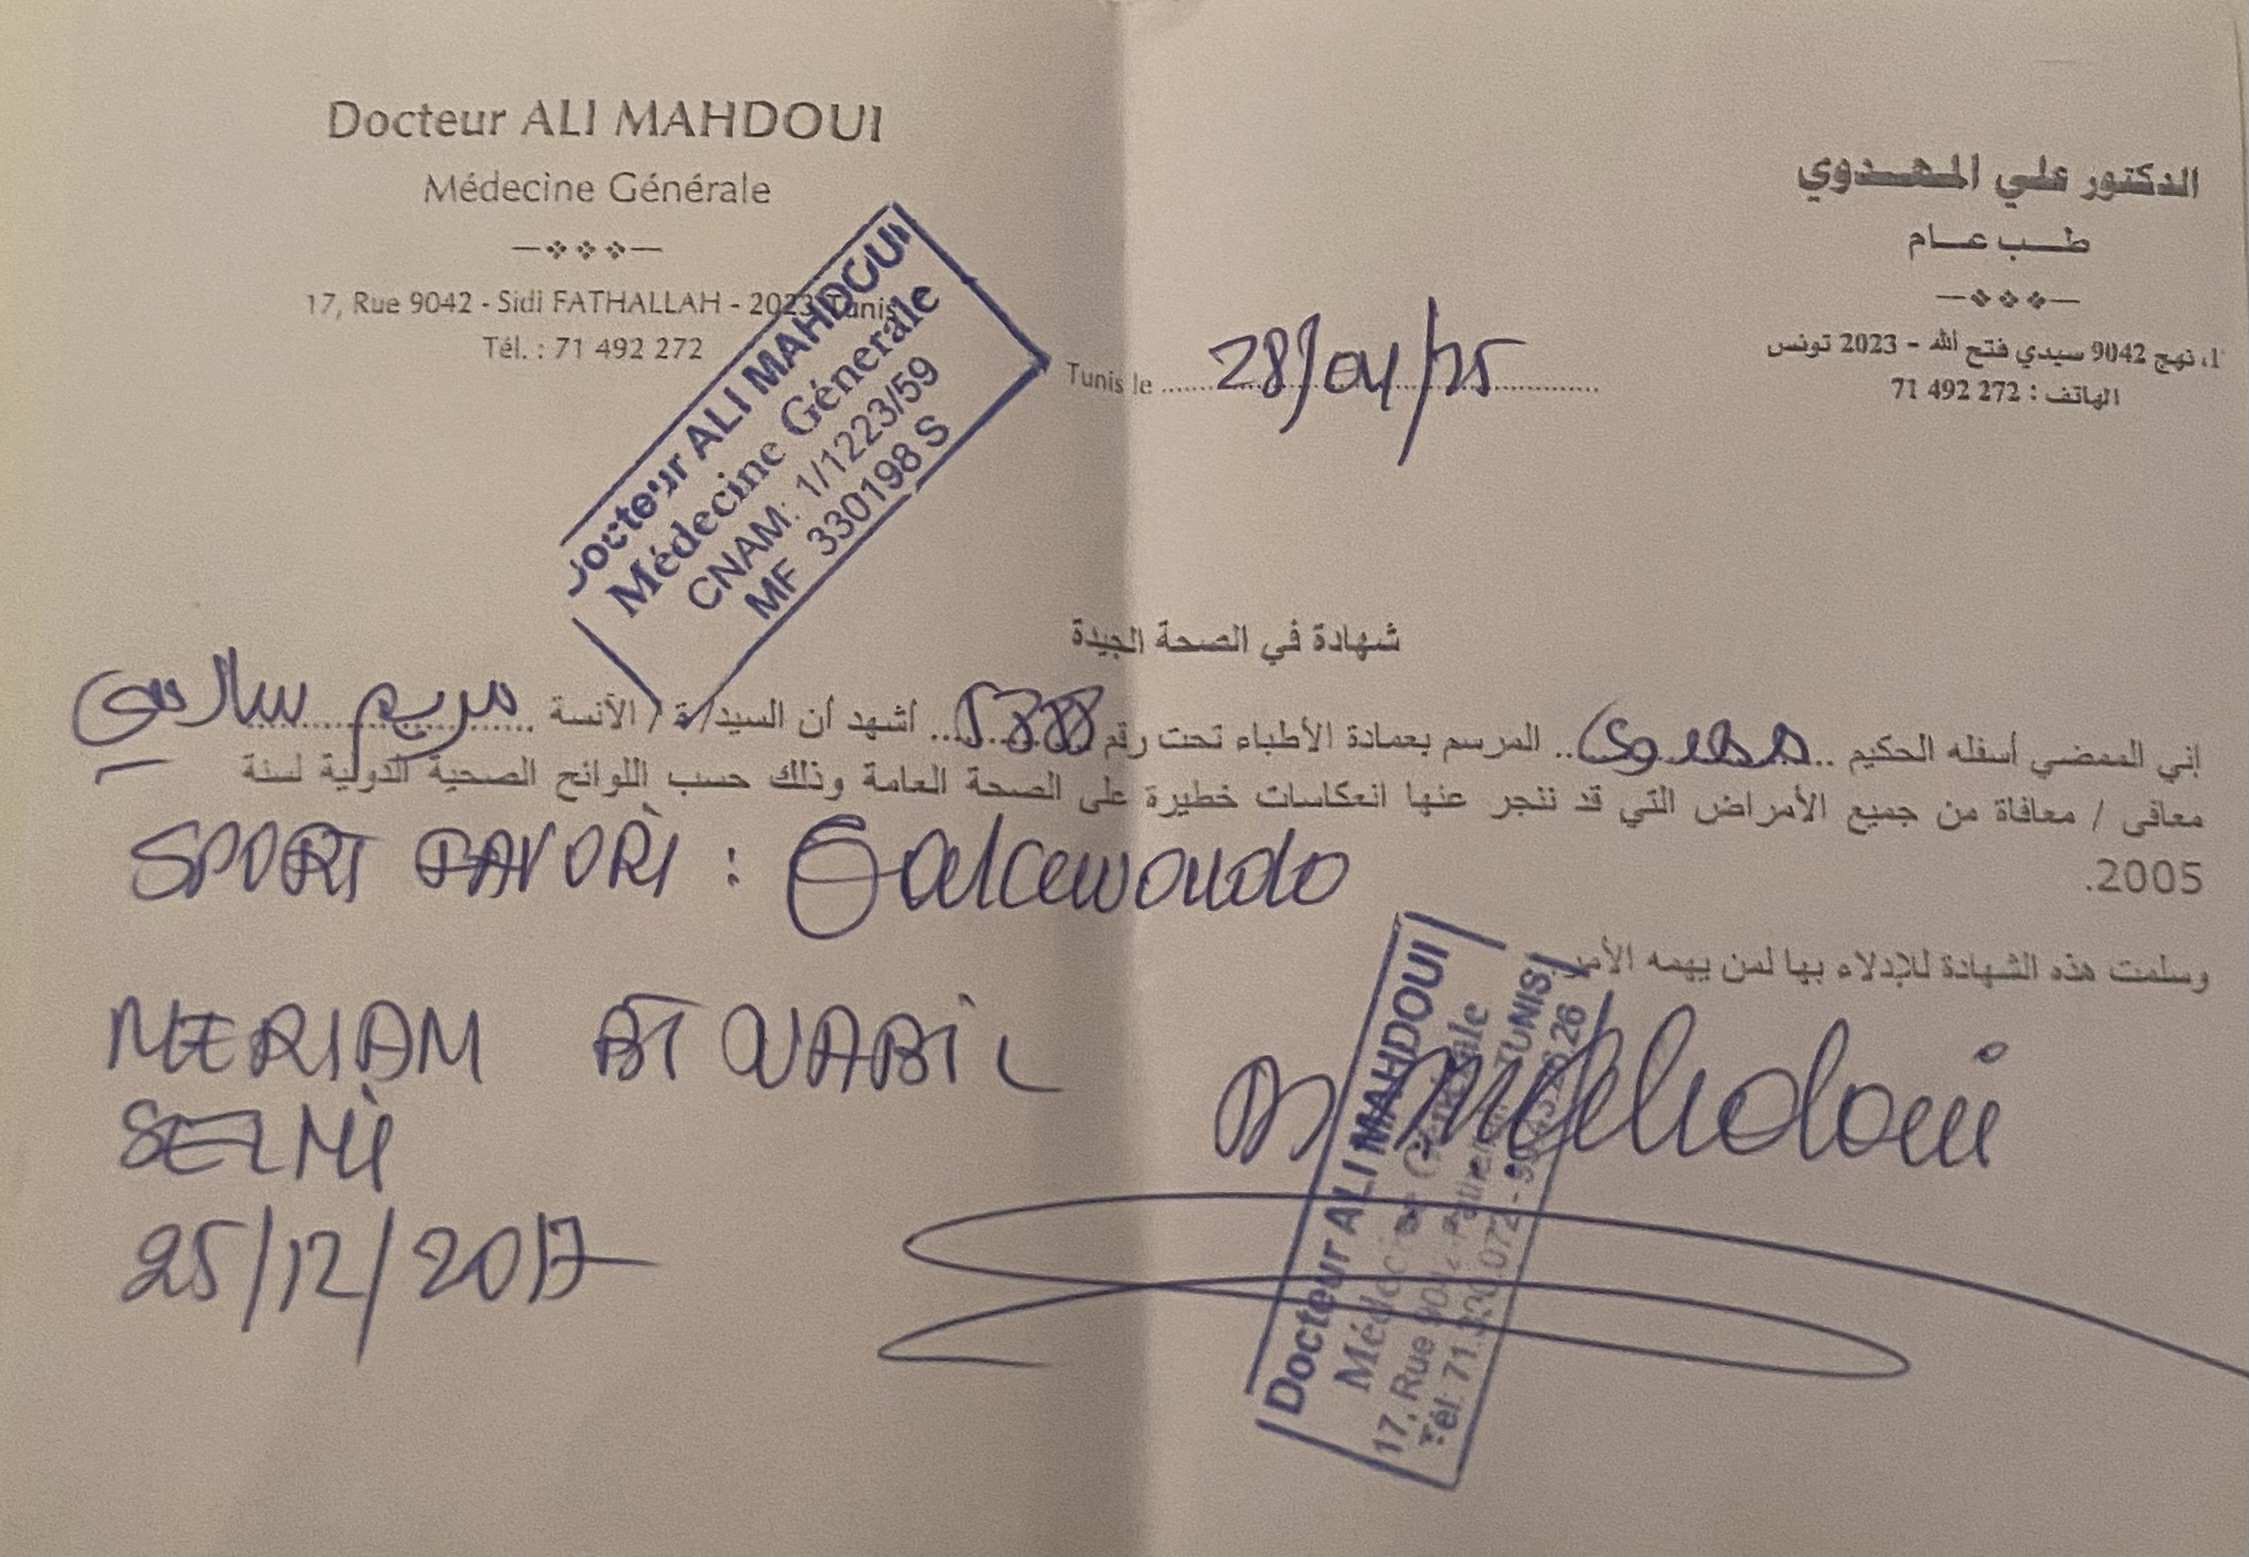 Docteur ALI MAHDOUI
Médecine Générale
17, Rue 9042 - Sidi FATHALLAH - 2023 Tunis
Tél. : 71 492 272
الدكتور علي المهدوي
طب عام
1، نهج 9042 سيدي فتح الله - 2023 تونس
الهاتف : 272 492 71
Docteur ALI MAHDOUI
Médecine Génerale
CNAM: 1/1223/59
MF 330198 S
Tunis le 28/04/25
شهادة في الصحة الجيدة
إني الممضي أسفله الحكيم مهدوي المرسم بعمادة الأطباء تحت رقم أشهد أن السيد/ة / الآنسة مريم سالمي
معافى / معافاة من جميع الأمراض التي قد ننجر عنها انعكاسات خطيرة على الصحة العامة وذلك حسب اللوائح الصحية الدولية لسنة
2005.
SPORT FAVORI :
وسلمت هذه الشهادة للإدلاء بها لمن يهمه الأمر.
MERIAM BT NABIL
SELMI
25/12/2017
Dr Mahdoui
Docteur ALI MAHDOUI
Médecine Générale
17, Rue 9042 - TUNIS
Tél: 71